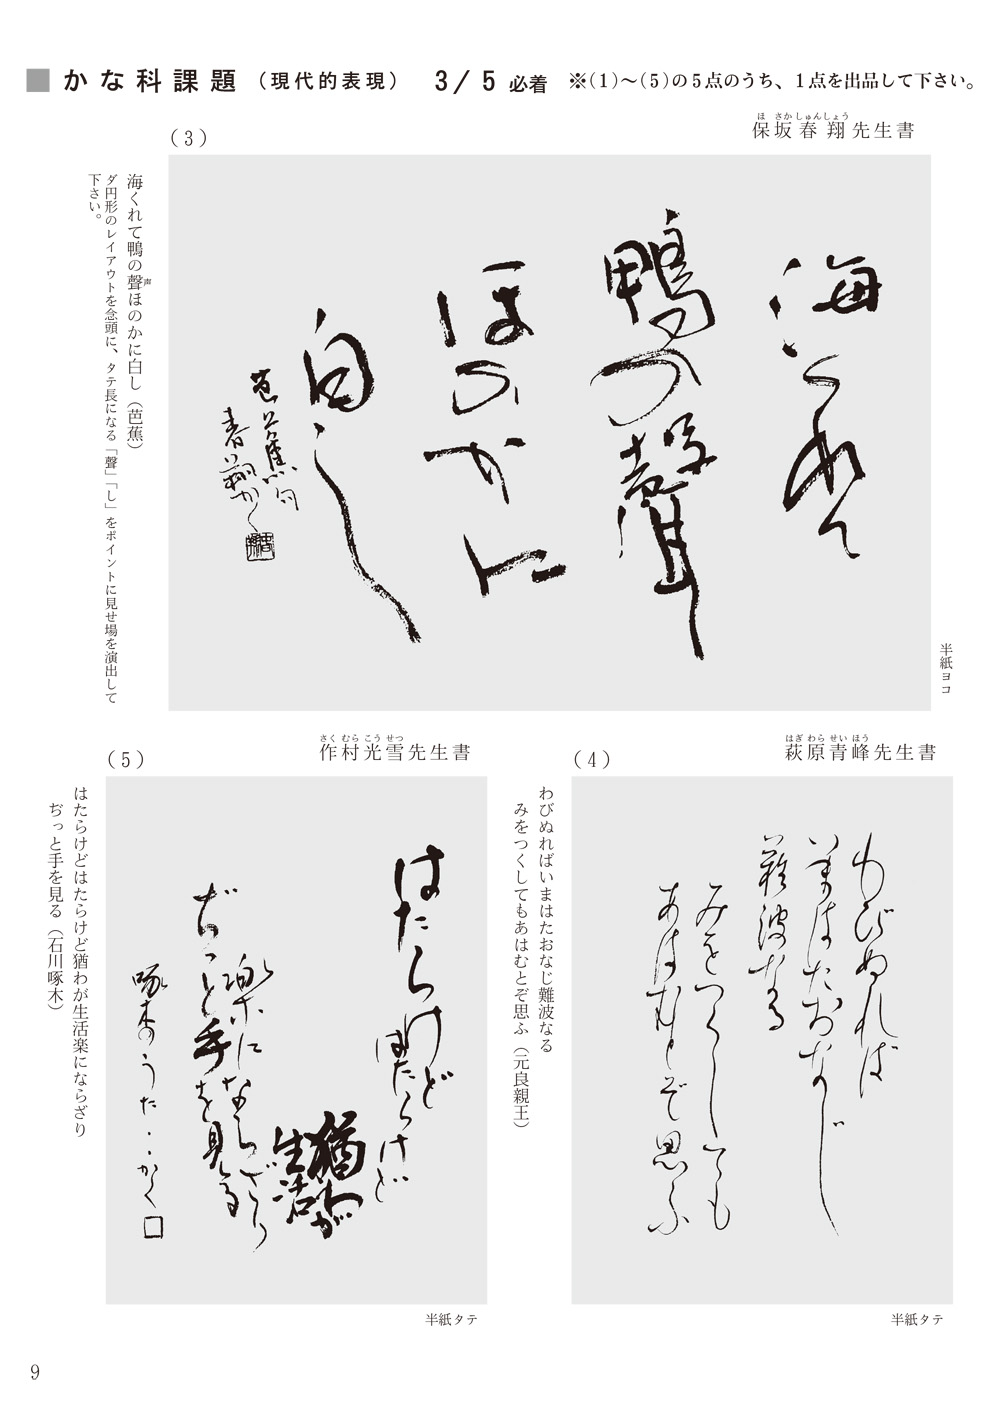 ■かな科課題（現代的表現） 3/5必着 ※（1）～（5）の5点のうち、1点を出品して下さい。
（3）
ほさかしゅんしょう
保坂春翔先生書
海くれて
鴨の聲
ほのかに
白し
芭蕉句
春翔かく
海くれて鴨の聲ほのかに白し（芭蕉）
声
ダ円形のレイアウトを念頭に、タテ長になる「聲」「し」をポイントに見せ場を演出して
下さい。
半紙ヨコ
（4）
はぎわらせいほう
萩原青峰先生書
わびぬれば
いまはたおなじ
難波なる
みをつくしても
あはむとぞ思ふ
わびぬればいまはたおなじ難波なる
みをつくしてもあはむとぞ思ふ（元良親王）
半紙タテ
（5）
さくむらこうせつ
作村光雪先生書
はたらけど
はたらけど
猶わが
生活
楽にならざり
ぢっと手を見る
啄木のうた・・かく□
はたらけどはたらけど猶わが生活楽にならざり
ぢっと手を見る（石川啄木）
半紙タテ
9